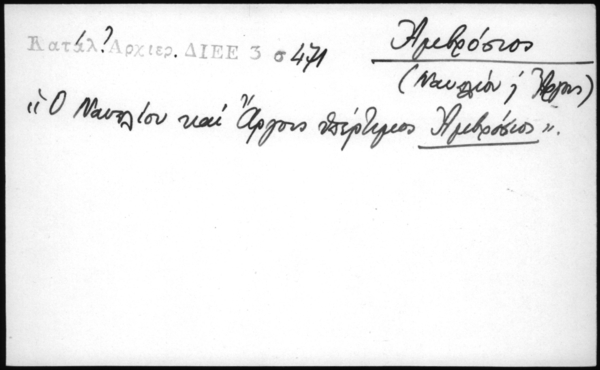 Κατάλ? Ἀρχιερ. ΔΙΕΕ 3 σ 471
Ἀμβρόσιος
(Ναυπλίου ἤ Ἄργους)
"Ὁ Ναυπλίου καί Ἄργους ὑπέρτιμος Ἀμβρόσιος".